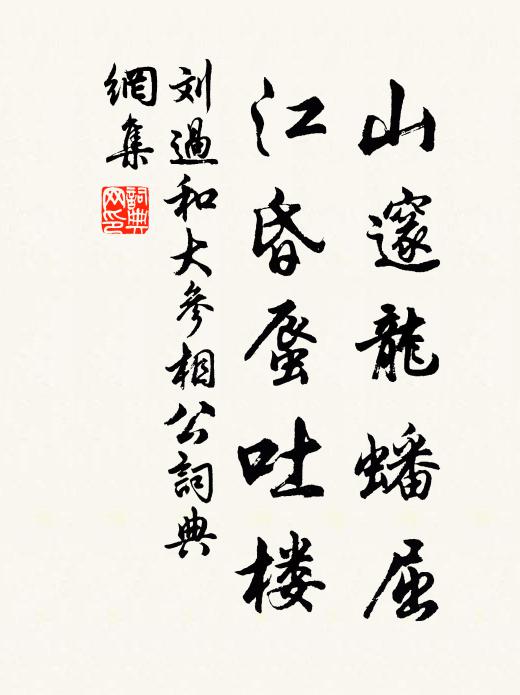 山邃龍蟠屈
江昏蜃吐楼
刘過和大參相公詞典
網集
詞典网印